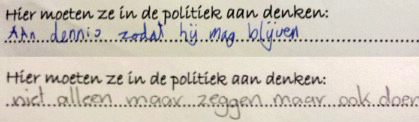 Hier moeten ze in de politiek aan denken:
Aan dennis zodat hij mag blijven
Hier moeten ze in de politiek aan denken:
niet alleen maar zeggen maar ook doen